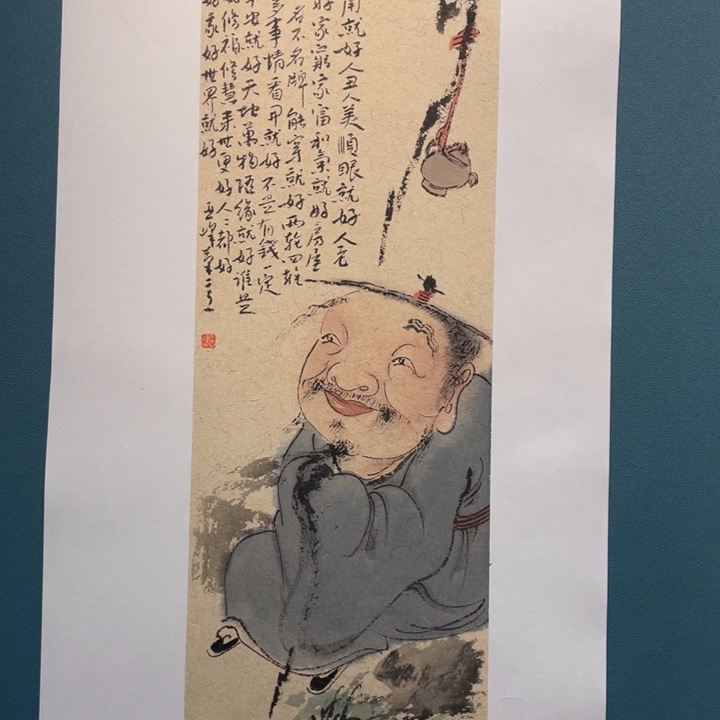 用就好人丑人美順眼就好人老
好家窮家富和氣就好房屋
名不名牌能穿就好兩輪四輪
事情看開就好不是有錢一定
安就好天地萬物隨緣就好誰是
修福修慧來世更好人人都好
好我好世界就好